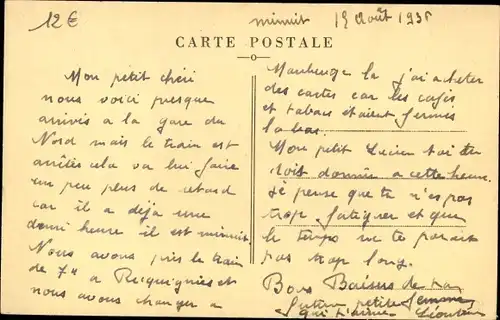 12€
minuit 12 Août 193
CARTE POSTALE
Mon petit chéri
nous voici presque
arrivés a la gare du
Nord mais le train est
arrêtés cela va lui faire
un peu plus de retard
car il a déjà une
demi heure il est minuit
Nous avons pris le train
de 7h a Recquignies et
nous avons changer a
Maubeuge la j'ai acheter
des cartes car les cafés
et tabacs étaient fermés
la bas.
Mon petit Lucien toi tu
doit dormir a cette heure.
Je pense que tu n'es pas
trop fatiguer et que
le temps ne te parait
pas trop long.
Bons Baisers de ta
future petite femme
qui t'aime